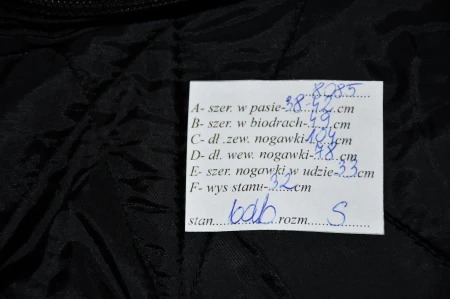 8085
A- szer. w pasie-38-42.cm
B- szer. w biodrach-49.cm
C- dł .zew. nogawki-104.cm
D- dł. wew. nogawki-78.cm
E- szer. nogawki w udzie-33cm
F- wys stanu-32cm
stan bdb rozm. S